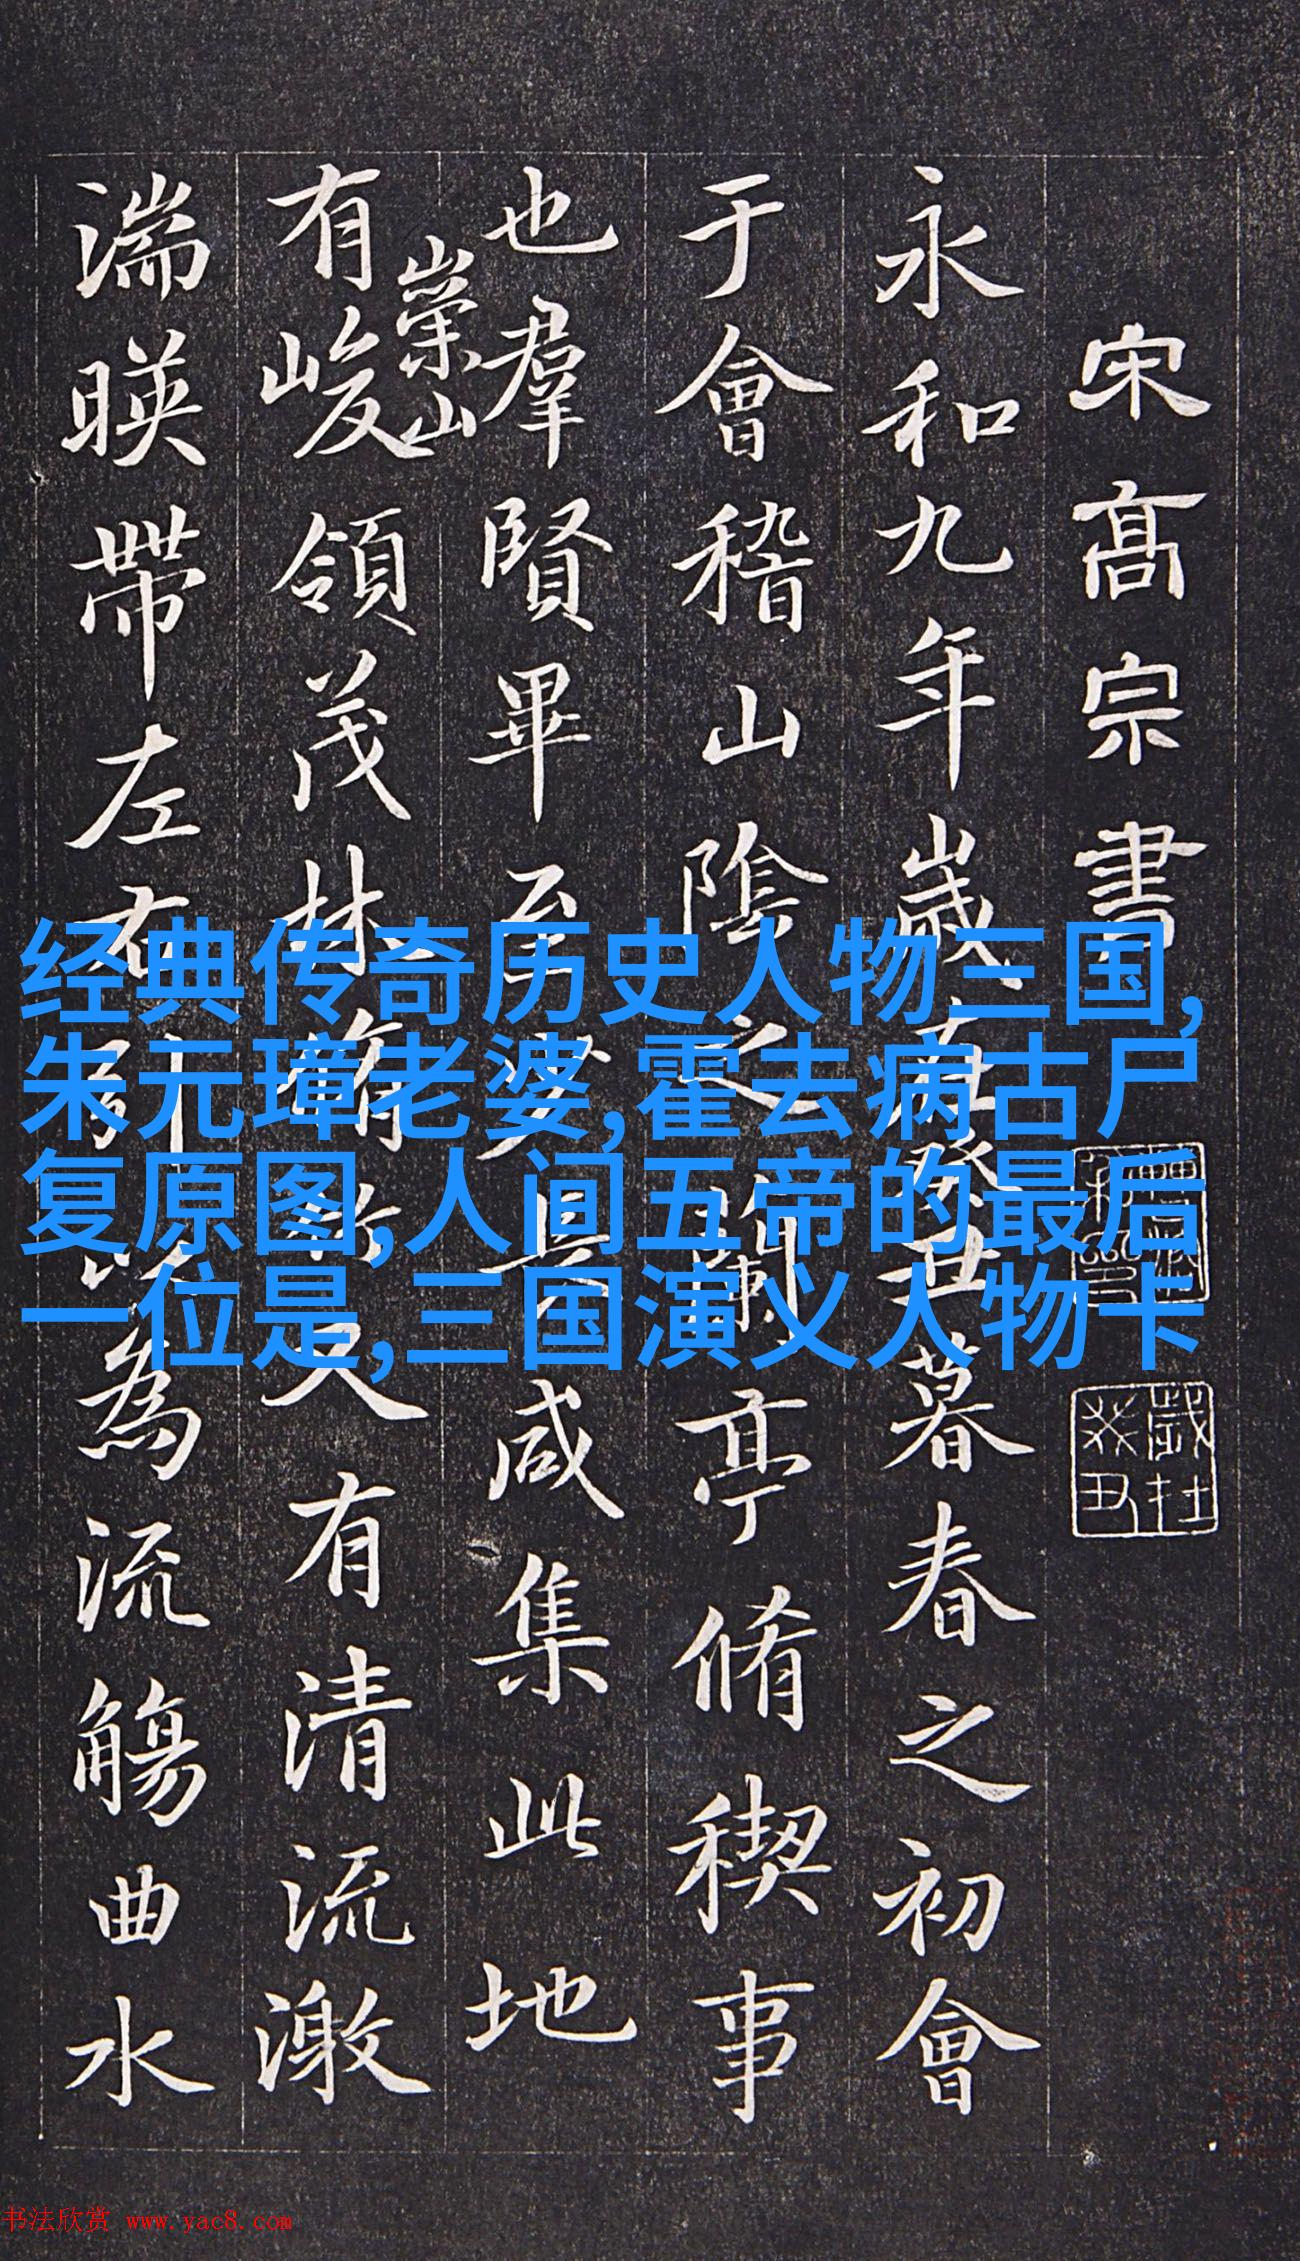 宋高宗書
永和九年歲在癸丑暮春之初會
于會稽山陰之蘭亭脩稧事
也羣賢畢至少長咸集此地
有峻領茂林脩竹又有清流激
崇山
湍暎帶左右引以為流觴曲水
经典传奇历史人物三国,
朱元璋老婆,霍去病古尸
复原图,人间五帝的最后
一位是,三国演义人物卡
歲社
癸丑
书法欣赏 www.yac8.com